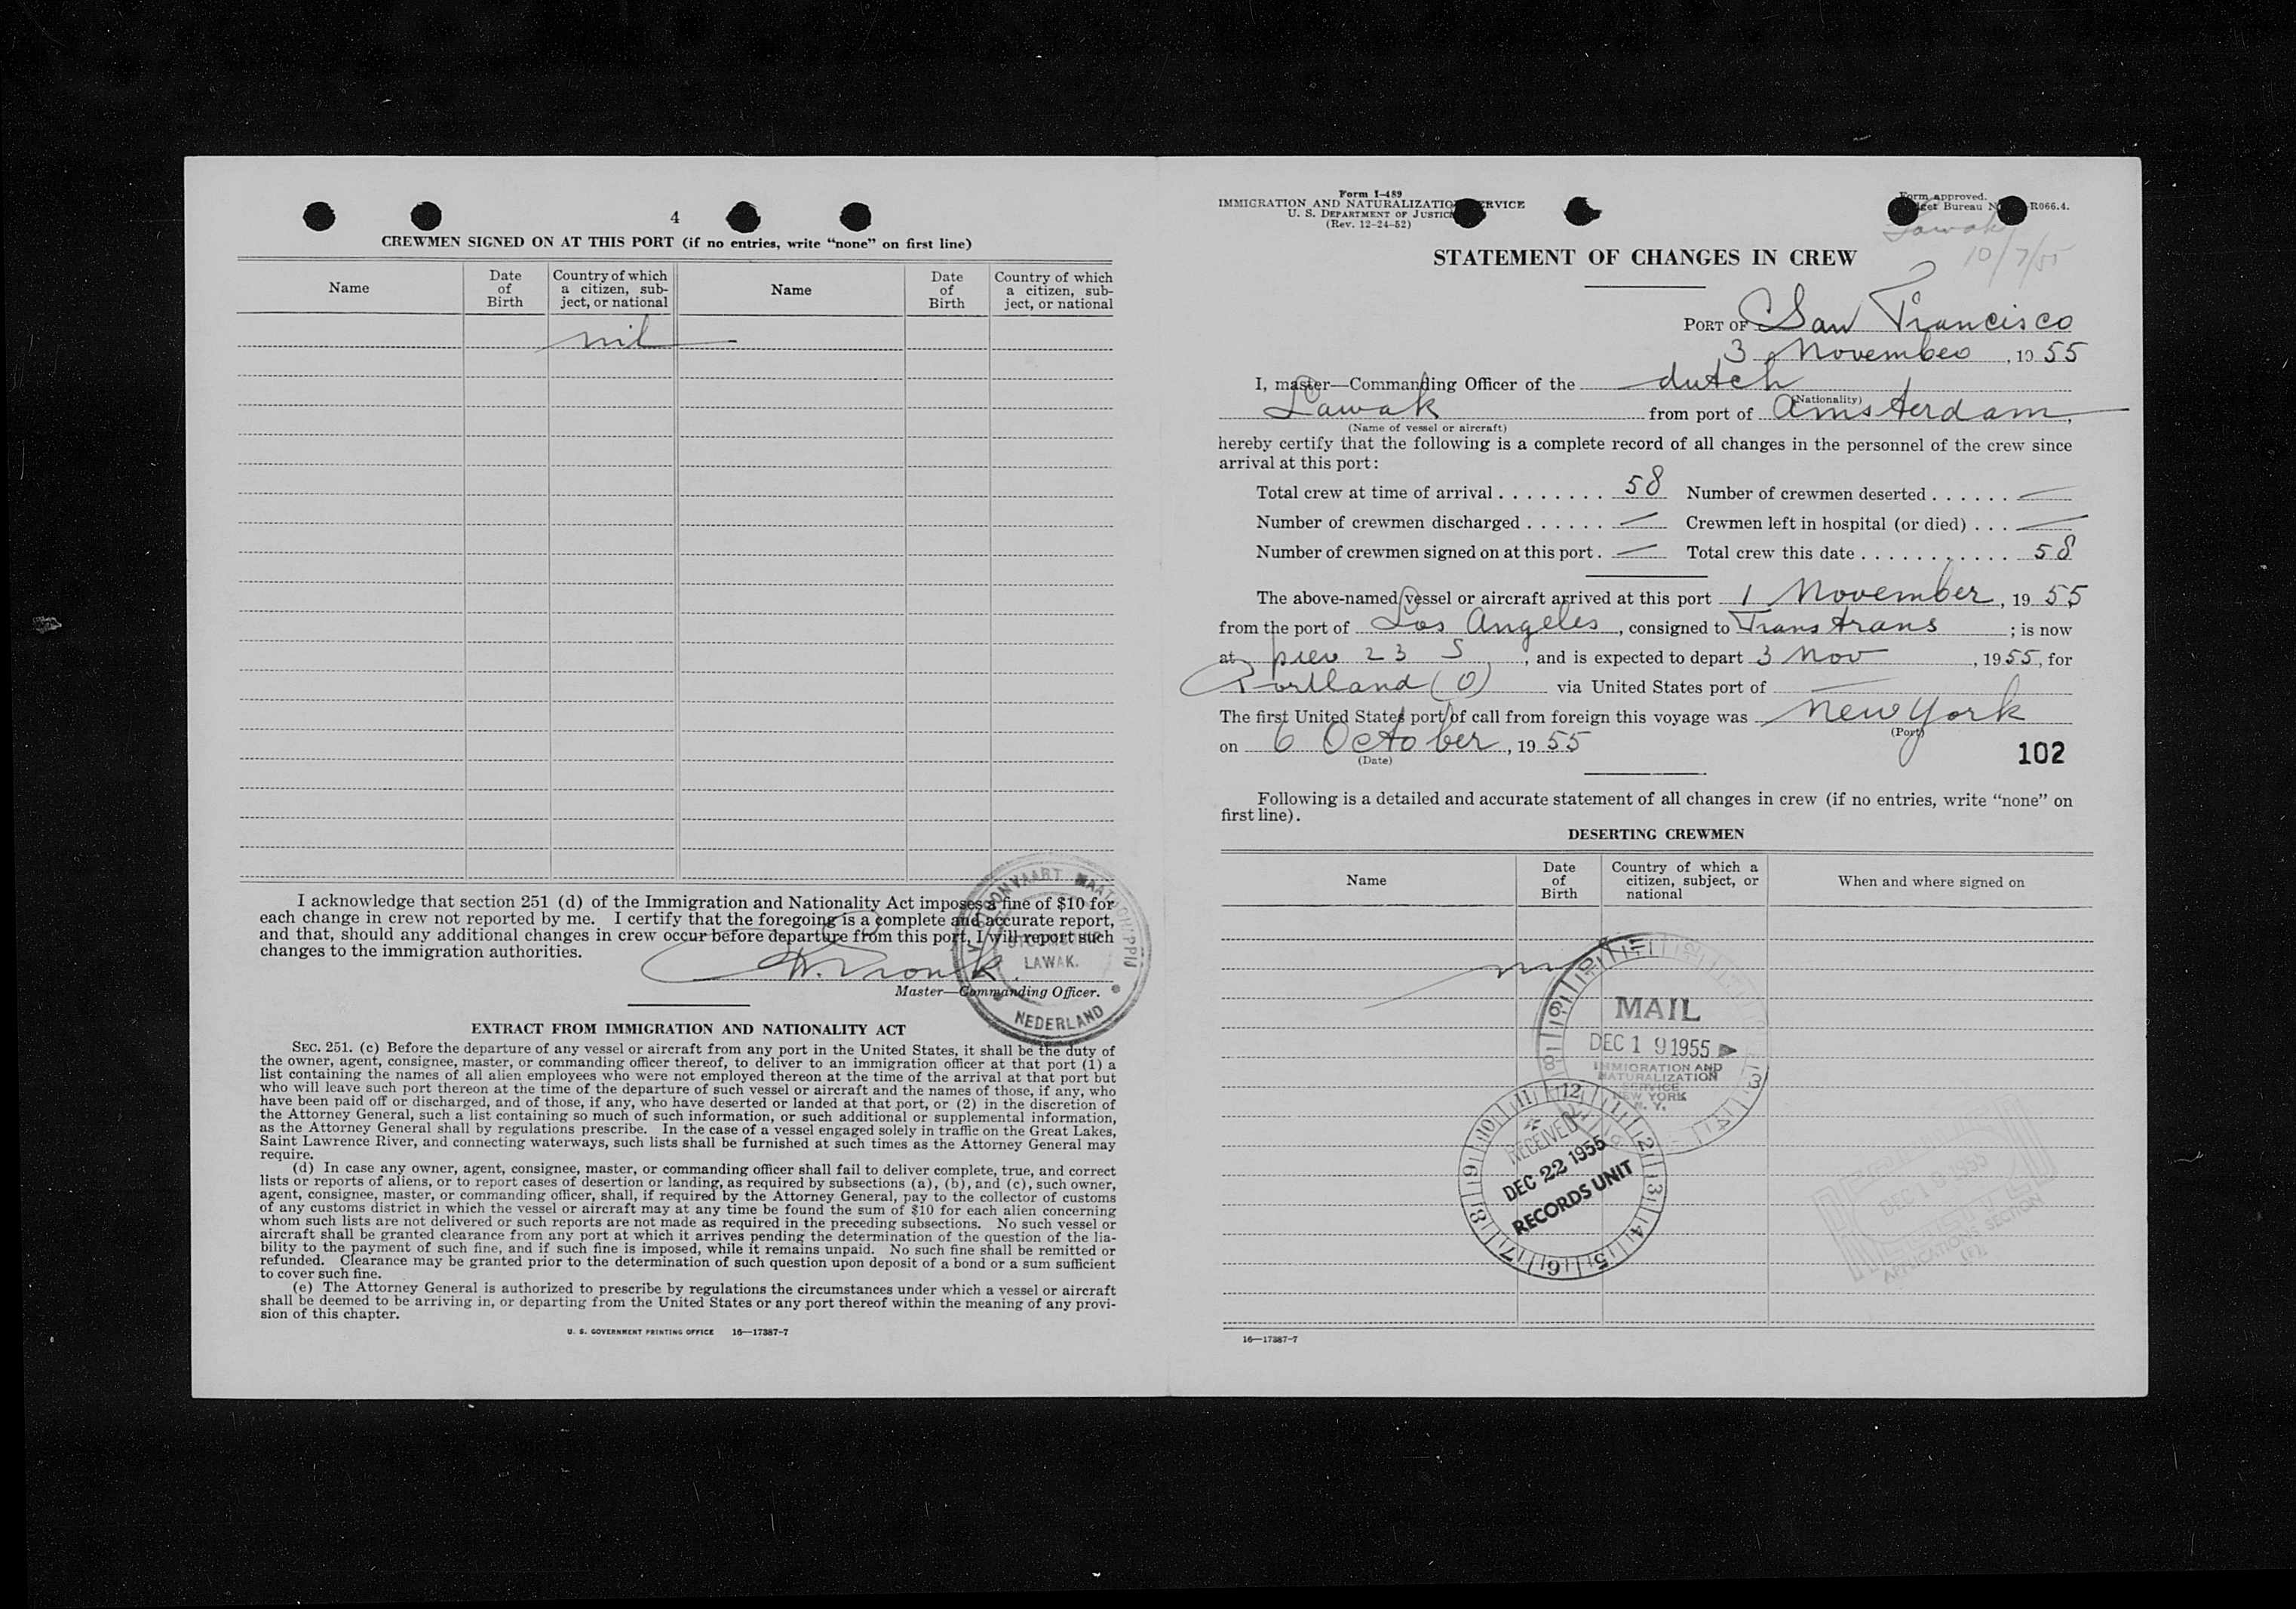 4
CREWMEN SIGNED ON AT THIS PORT (if no entries, write “none” on first line)
Name
Date of Birth
Country of which a citizen, subject, or national
Name
Date of Birth
Country of which a citizen, subject, or national
nil
I acknowledge that section 251 (d) of the Immigration and Nationality Act imposes a fine of $10 for
each change in crew not reported by me. I certify that the foregoing is a complete and accurate report,
and that, should any additional changes in crew occur before departure from this port, I will report such
changes to the immigration authorities.
Master—Commanding Officer.
LAWAK.
NEDERLAND
EXTRACT FROM IMMIGRATION AND NATIONALITY ACT
SEC. 251. (c) Before the departure of any vessel or aircraft from any port in the United States, it shall be the duty of
the owner, agent, consignee, master, or commanding officer thereof, to deliver to an immigration officer at that port (1) a
list containing the names of all alien employees who were not employed thereon at the time of the arrival at that port but
who will leave such port thereon at the time of the departure of such vessel or aircraft and the names of those, if any, who
have been paid off or discharged, and of those, if any, who have deserted or landed at that port, or (2) in the discretion of
the Attorney General, such a list containing so much of such information, or such additional or supplemental information,
as the Attorney General shall by regulations prescribe. In the case of a vessel engaged solely in traffic on the Great Lakes,
Saint Lawrence River, and connecting waterways, such lists shall be furnished at such times as the Attorney General may
require.
(d) In case any owner, agent, consignee, master, or commanding officer shall fail to deliver complete, true, and correct
lists or reports of aliens, or to report cases of desertion or landing, as required by subsections (a), (b), and (c), such owner,
agent, consignee, master, or commanding officer, shall, if required by the Attorney General, pay to the collector of customs
of any customs district in which the vessel or aircraft may at any time be found the sum of $10 for each alien concerning
whom such lists are not delivered or such reports are not made as required in the preceding subsections. No such vessel or
aircraft shall be granted clearance from any port at which it arrives pending the determination of the question of the lia-
bility to the payment of such fine, and if such fine is imposed, while it remains unpaid. No such fine shall be remitted or
refunded. Clearance may be granted prior to the determination of such question upon deposit of a bond or a sum sufficient
to cover such fine.
(e) The Attorney General is authorized to prescribe by regulations the circumstances under which a vessel or aircraft
shall be deemed to be arriving in, or departing from the United States or any port thereof within the meaning of any provi-
sion of this chapter.
U. S. GOVERNMENT PRINTING OFFICE 16—17387-7
Form I-489
IMMIGRATION AND NATURALIZATION SERVICE
U. S. DEPARTMENT OF JUSTICE
(Rev. 12-24-52)
Form approved.
Budget Bureau R066.4.
Lawak
10/7/55
STATEMENT OF CHANGES IN CREW
PORT OF San Francisco
3 November, 1955
I, master—Commanding Officer of the dutch
(Nationality)
Lawak from port of Amsterdam,
(Name of vessel or aircraft)
hereby certify that the following is a complete record of all changes in the personnel of the crew since
arrival at this port:
Total crew at time of arrival 58 Number of crewmen deserted —
Number of crewmen discharged — Crewmen left in hospital (or died) —
Number of crewmen signed on at this port — Total crew this date 58
The above-named vessel or aircraft arrived at this port 1 November, 1955
from the port of Los Angeles, consigned to Transtrans; is now
at pier 23 S, and is expected to depart 3 Nov, 1955, for
Portland (O) via United States port of —
The first United States port of call from foreign this voyage was New York
(Port)
on 6 October, 1955
(Date)
102
Following is a detailed and accurate statement of all changes in crew (if no entries, write “none” on
first line).
DESERTING CREWMEN
Name
Date of Birth
Country of which a citizen, subject, or national
When and where signed on
MAIL
DEC 19 1955
IMMIGRATION AND
NATURALIZATION
SERVICE
NEW YORK
N. Y.
RECEIVED
DEC 22 1955
RECORDS UNIT
16—17387-7